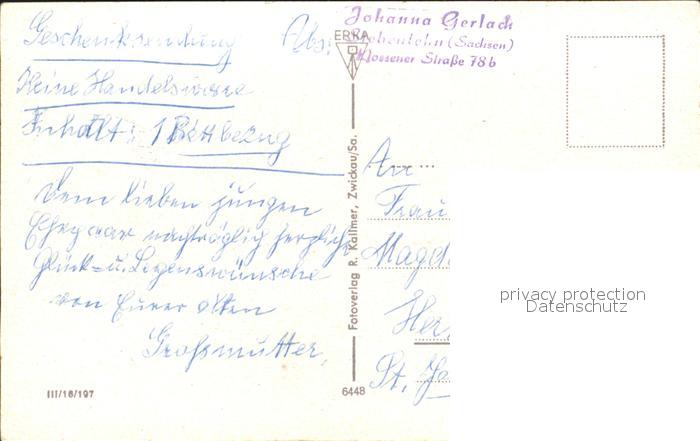 Geschenksendung
Keine Handelsware
Inhalt: 1 Bettbezug
Dem lieben jungen
Ehepaar nachträglich herzliche
Glück- u. Segenswünsche
von Eurer alten
Großmutter,
III/18/197
Abs:
ERKA
Johanna Gerlach
Siebenlehn (Sachsen)
Nossener Straße 78b
Fotoverlag R. Kallmer, Zwickau/Sa.
6448
An
Frau
Magd
Her
St.
privacy protection
Datenschutz